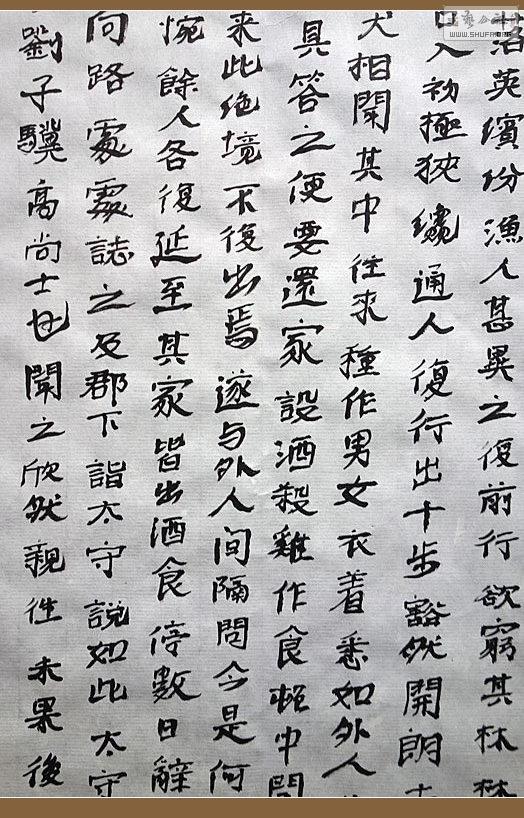 落英繽份漁人甚異之復前行欲窮其林林
口入初極狹纔通人復行出十步豁然開朗土
犬相聞其中往来種作男女衣着悉如外人
具答之便要還家設酒殺雞作食邨中聞
来此绝境不復出焉遂与外人间隔問今是何
惋餘人各復延至其家皆出酒食停數日辭
向路處處誌之及郡下詣太守說如此太守
劉子驥高尚士也聞之欣然親往未果後
WWW.SHUFA